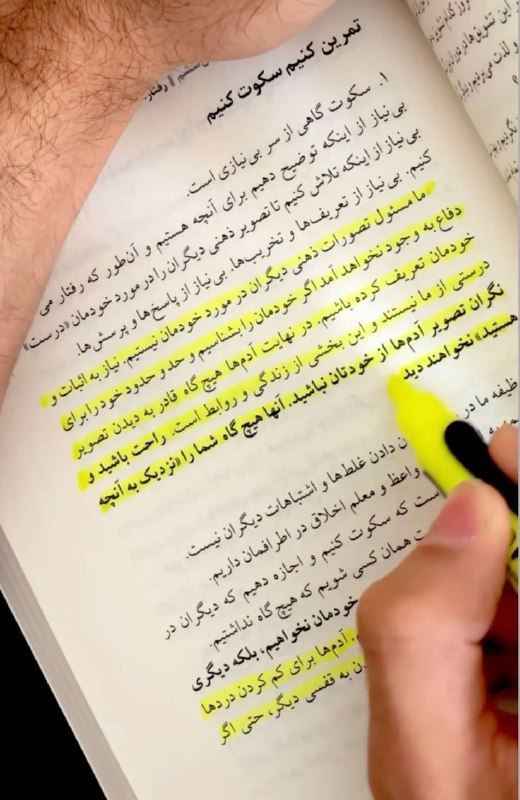 رفتار
تمرین کنیم سکوت کنیم
۱. سکوت گاهی از سر بی‌نیازی است.
بی‌نیاز از اینکه توضیح دهیم برای آنچه هستیم و آن‌طور که رفتار می
کنیم. بی‌نیاز از اینکه تلاش کنیم تا تصویر ذهنی دیگران را در مورد خودمان «درست»
کنیم. بی‌نیاز از تعریف‌ها و تخریب‌ها. بی‌نیاز از پاسخ‌ها و پرسش‌ها.
ما مسئول تصورات ذهنی دیگران در مورد خودمان نیستیم. نیاز به اثبات و
دفاع به وجود نخواهد آمد اگر خودمان را بشناسیم و حد و حدود خود را برای
خودمان تعریف کرده باشیم. در نهایت آدم‌ها هیچ گاه قادر به دیدن تصویر
درستی از ما نیستند و این بخشی از زندگی و روابط است. راحت باشید و
نگران تصویر آدم‌ها از خودتان نباشید. آنها هیچ گاه شما را «نزدیک به آنچه
هستید» نخواهند دید
ظیفه ما در
دادن غلط‌ها و اشتباهات دیگران نیست.
واعظ و معلم اخلاق در اطرافمان داریم.
است که سکوت کنیم و اجازه دهیم که دیگران در
همان کسی شویم که هیچ گاه نداشتیم.
خودمان نخواهیم، بلکه دیگری
آدم‌ها برای کم کردن دردها
به قفسی دیگر، حتی اگر